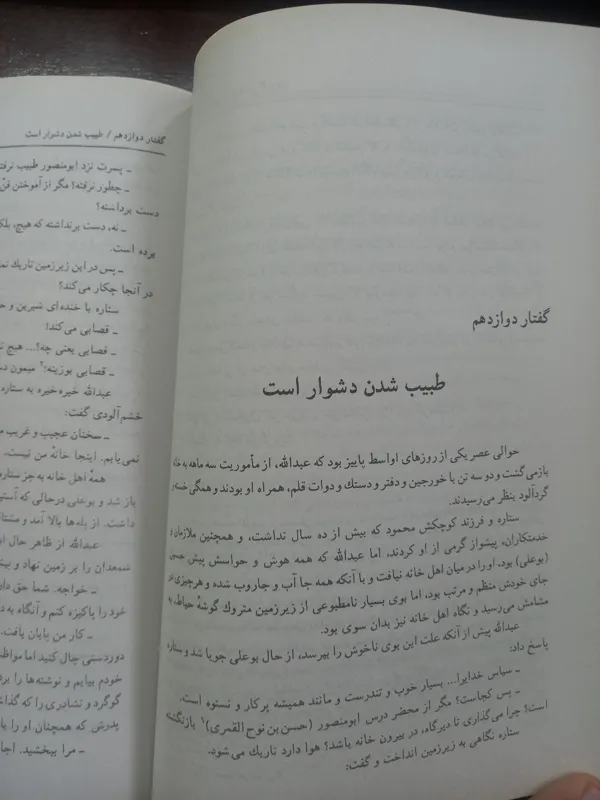 گفتار دوازدهم
طبیب شدن دشوار است
حوالی عصر یکی از روزهای اواسط پاییز بود که عبدالله، از مأموریت سه ماهه به خانه
بازمی‌گشت و دو سه تن با خورجین و دفتر و دستك و دوات قلم، همراه او بودند و همگی خسته و
گردآلود بنظر می‌رسیدند.
ستاره و فرزند کوچکش محمود که بیش از ده سال نداشت، و همچنین ملازمان و
خدمتکاران، پیشواز گرمی از او کردند، اما عبدالله که همه هوش و حواسش پیش حسین
(بوعلی) بود. او را در میان اهل خانه نیافت و با آنکه همه جا آب و جاروب شده و هرچیزی
جای خودش منظم و مرتب بود، اما بوی بسیار نامطبوعی از زیرزمین متروك گوشهٔ حیاط، به
مشامش می‌رسید و نگاه اهل خانه نیز بدان سوی بود.
عبدالله پیش از آنکه علت این بوی ناخوش را بپرسد، از حال بوعلی جویا شد و ستاره
پاسخ داد:
ـ سپاس خدایرا... بسیار خوب و تندرست و مانند همیشه پرکار و نستوه است.
ـ پس کجاست؟ مگر از محضر درس ابومنصور (حسن بن نوح القمری)۱ بازنگشته
است؟ چرا می‌گذاری تا دیرگاه، در بیرون خانه باشد؟ هوا دارد تاریك می‌شود.
ستاره نگاهی به زیرزمین انداخت و گفت:
گفتار دوازدهم / طبیب شدن دشوار است
ـ پسرت نزد ابومنصور طبیب نرفته
ـ چطور نرفته؟ مگر از آموختن فنّ
دست برداشته؟
ـ نه، دست برنداشته که هیچ،
برده است.
ـ پس در این زیرزمین تاریك
در آنجا چکار می‌کند؟
ستاره با خنده‌ای شیرین و
ـ قصابی می‌کند!
ـ قصابی یعنی چه؟... هیچ
ـ قصابی بوزینه!۲ میمون
عبدالله خیره‌خیره به ستاره
خشم‌آلودی گفت:
ـ سخنان عجیب و غریب
نمی‌یابم. اینجا خانهٔ من نیست.
همهٔ اهل خانه به جز ستاره
باز شد و بوعلی درحالی که
داشت. از پله‌ها بالا آمد و
عبدالله از ظاهر حال او
شمعدان را بر زمین نهاد و
ـ خواجه. شما حق
خود را پاکیزه کنم و آنگاه به
ـ کار من پایان یافت.
دوردستی چال کنید اما
خودم بیایم و نوشته‌ها را
گوگرد و نشادری را که
پدرش که همچنان او را
ـ مرا ببخشید.